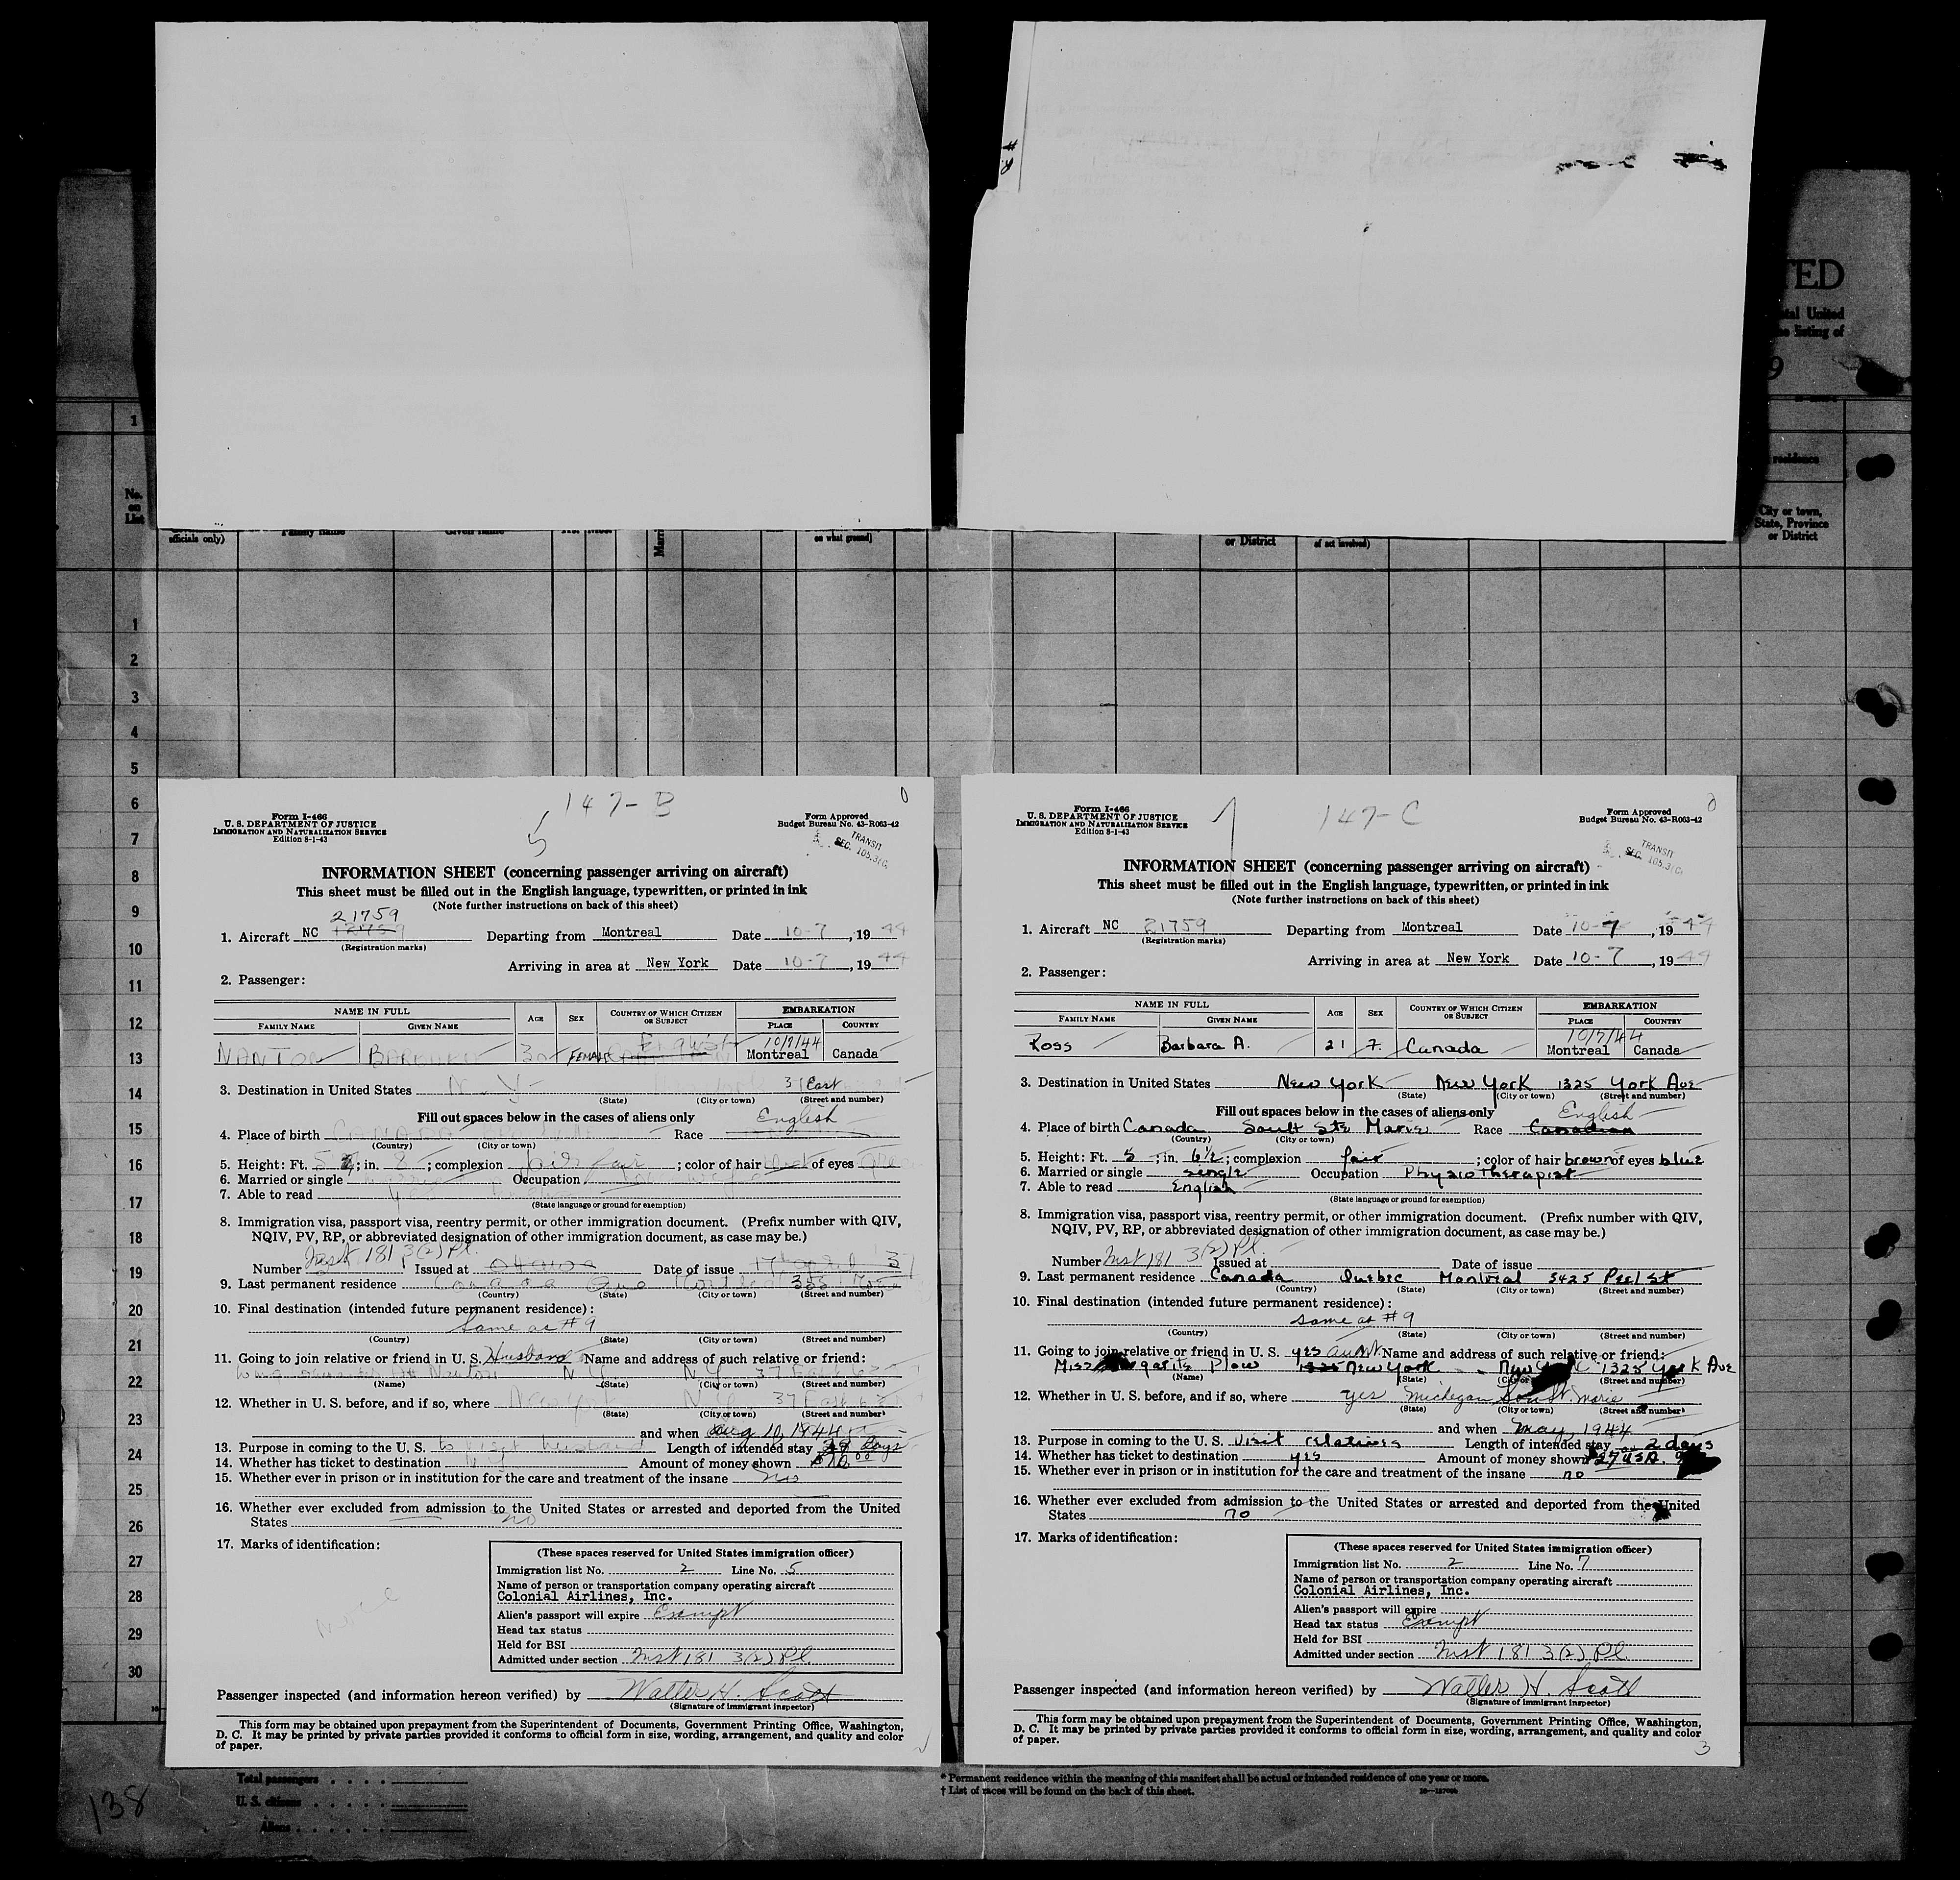 #2
TED
tal United
e listing of
9
1
residence
No.
on
List
City or town,
State, Province
or District
officials only)
Family name
Given name
on what ground]
or District
of act involved)
1
2
3
4
5
6
7
8
9
10
11
12
13
14
15
16
17
18
19
20
21
22
23
24
25
26
27
28
29
30
147-B
5
Form I-466
U. S. DEPARTMENT OF JUSTICE
IMMIGRATION AND NATURALIZATION SERVICE
Edition 8-1-43
Form Approved
Budget Bureau No. 43-R063-42
TRANSIT
SEC. 105.3(C)
INFORMATION SHEET (concerning passenger arriving on aircraft)
This sheet must be filled out in the English language, typewritten, or printed in ink
(Note further instructions on back of this sheet)
21759
1. Aircraft NC Departing from Montreal Date 10-7, 1944
(Registration marks)
Arriving in area at New York Date 10-7, 1944
2. Passenger:
NAME IN FULL AGE SEX COUNTRY OF WHICH CITIZEN OR SUBJECT EMBARKATION
FAMILY NAME GIVEN NAME PLACE COUNTRY
English 10/7/44
BARBARA 30 FEMALE Montreal Canada
3. Destination in United States N.Y. 37 East
(State) (City or town) (Street and number)
Fill out spaces below in the cases of aliens only
English
4. Place of birth CANADA Race
(Country) (City or town)
5. Height: Ft. 5; in. 8; complexion fair; color of hair of eyes
6. Married or single Occupation
7. Able to read yes
(State language or ground for exemption)
8. Immigration visa, passport visa, reentry permit, or other immigration document. (Prefix number with QIV,
NQIV, PV, RP, or abbreviated designation of other immigration document, as case may be.)
Inst 181 3(2) Pl.
Number Issued at Ottawa Date of issue
9. Last permanent residence Canada Que Montreal
(Country) (State) (City or town) (Street and number)
10. Final destination (intended future permanent residence):
Same as #9
(Country) (State) (City or town) (Street and number)
11. Going to join relative or friend in U. S. Husband Name and address of such relative or friend:
N.Y. N.Y. 37 East
(Name) (State) (City or town) (Street and number)
12. Whether in U. S. before, and if so, where New York N.Y. 37 East
(State) (City or town) (Street and number)
and when Aug 10, 1944
13. Purpose in coming to the U. S. to visit husband Length of intended stay 28 days
14. Whether has ticket to destination Amount of money shown
15. Whether ever in prison or in institution for the care and treatment of the insane no
16. Whether ever excluded from admission to the United States or arrested and deported from the United
States no
17. Marks of identification:
none
(These spaces reserved for United States immigration officer)
Immigration list No. 2 Line No. 5
Name of person or transportation company operating aircraft
Colonial Airlines, Inc.
Alien's passport will expire Exempt
Head tax status
Held for BSI
Admitted under section Inst 181 3(2) Pl
Passenger inspected (and information hereon verified) by Walter H. Scott
(Signature of immigrant inspector)
This form may be obtained upon prepayment from the Superintendent of Documents, Government Printing Office, Washington,
D. C. It may be printed by private parties provided it conforms to official form in size, wording, arrangement, and quality and color
of paper.
147-C
Form I-466
U. S. DEPARTMENT OF JUSTICE
IMMIGRATION AND NATURALIZATION SERVICE
Edition 8-1-43
Form Approved
Budget Bureau No. 43-R063-42
TRANSIT
SEC. 105.3(C)
INFORMATION SHEET (concerning passenger arriving on aircraft)
This sheet must be filled out in the English language, typewritten, or printed in ink
(Note further instructions on back of this sheet)
1. Aircraft NC 21759 Departing from Montreal Date 10-7, 1944
(Registration marks)
Arriving in area at New York Date 10-7, 1944
2. Passenger:
NAME IN FULL AGE SEX COUNTRY OF WHICH CITIZEN OR SUBJECT EMBARKATION
FAMILY NAME GIVEN NAME PLACE COUNTRY
10/7/44
Ross Barbara A. 21 7. Canada Montreal Canada
3. Destination in United States New York New York 1325 York Ave
(State) (City or town) (Street and number)
Fill out spaces below in the cases of aliens only
English
4. Place of birth Canada Sault Ste Marie Race Canadian
(Country) (City or town)
5. Height: Ft. 5; in. 6½; complexion fair; color of hair brown of eyes blue
6. Married or single single Occupation Physiotherapist
7. Able to read English
(State language or ground for exemption)
8. Immigration visa, passport visa, reentry permit, or other immigration document. (Prefix number with QIV,
NQIV, PV, RP, or abbreviated designation of other immigration document, as case may be.)
Number Inst 181 3(2) Pl. Issued at Date of issue
9. Last permanent residence Canada Quebec Montreal 3425 Peel St
(Country) (State) (City or town) (Street and number)
10. Final destination (intended future permanent residence):
same as #9
(Country) (State) (City or town) (Street and number)
11. Going to join relative or friend in U. S. yes aunt Name and address of such relative or friend:
Miss Plow 1325 New York 1325 York Ave
(Name) (State) (City or (Street and number)
12. Whether in U. S. before, and if so, where yes Michegan Sault St. Marie
(State) (City or town) (Street and number)
and when May, 1944
13. Purpose in coming to the U. S. Visit relatives Length of intended stay 2 days
14. Whether has ticket to destination yes Amount of money shown $27 USA.
15. Whether ever in prison or in institution for the care and treatment of the insane no
16. Whether ever excluded from admission to the United States or arrested and deported from the United
States no
17. Marks of identification:
(These spaces reserved for United States immigration officer)
Immigration list No. 2 Line No. 7
Name of person or transportation company operating aircraft
Colonial Airlines, Inc.
Alien's passport will expire
Head tax status Exempt
Held for BSI
Admitted under section Inst 181 3(2) Pl
Passenger inspected (and information hereon verified) by Walter H. Scott
(Signature of immigrant inspector)
This form may be obtained upon prepayment from the Superintendent of Documents, Government Printing Office, Washington,
D. C. It may be printed by private parties provided it conforms to official form in size, wording, arrangement, and quality and color
of paper.
3
Total passengers . . . .
U. S. citizens . . . . .
Aliens . . . . . .
138
* Permanent residence within the meaning of this manifest shall be actual or intended residence of one year or more.
† List of races will be found on the back of this sheet.